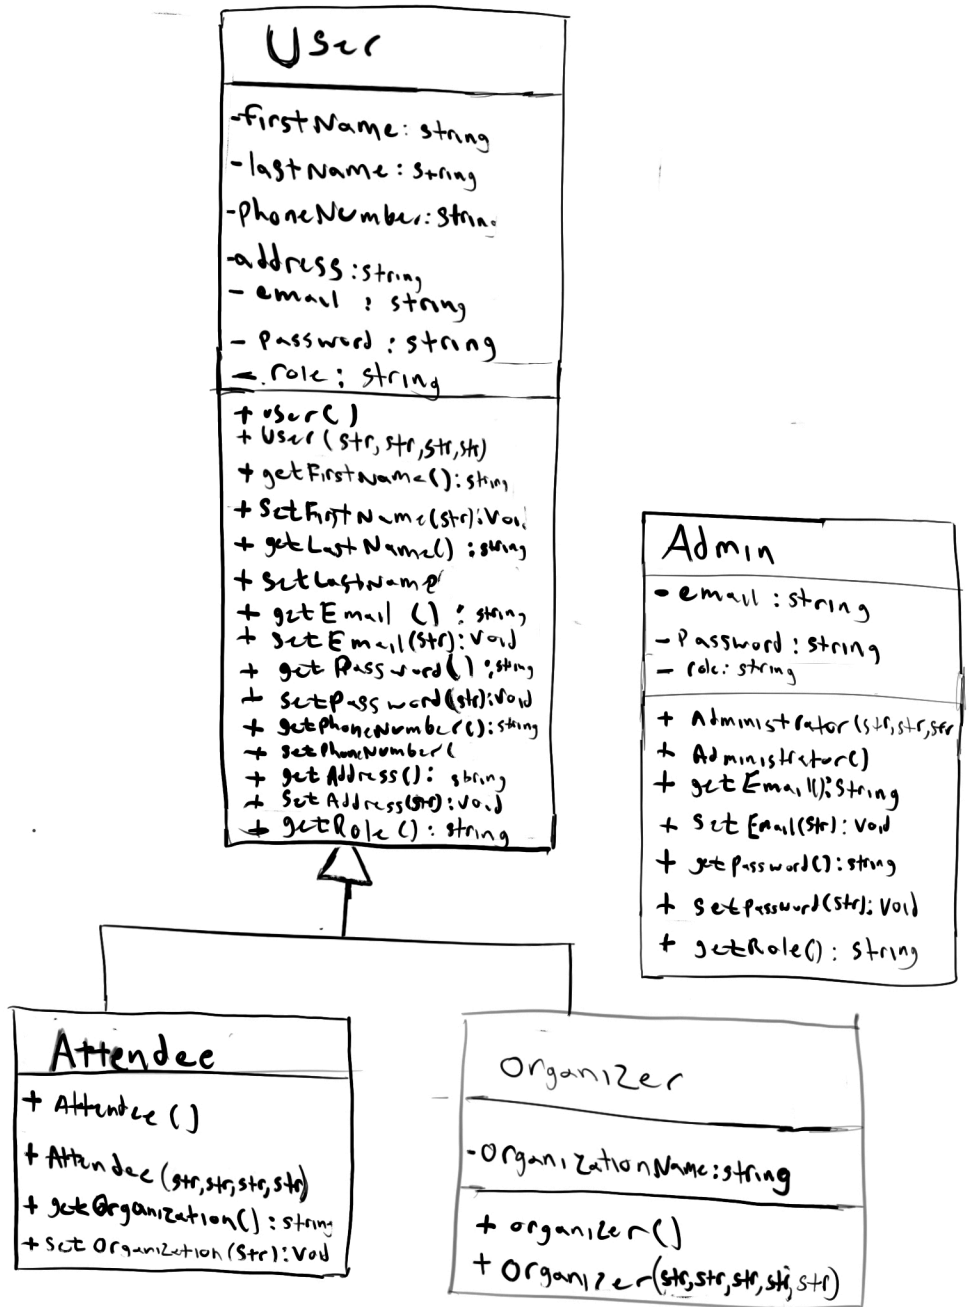 User
-firstName: string
-lastName: string
-phoneNumber: string
-address: string
- email : string
- password : string
- role: string
+ user()
+ User(str, str, str, str)
+ getFirstName(): string
+ setFirstName(str): Void
+ getLastName() : string
+ setLastName
+ getEmail () : string
+ setEmail(str): Void
+ getPassword() : string
+ setPassword(str): Void
+ getPhoneNumber(): string
+ setPhoneNumber(
+ getAddress(): string
+ SetAddress(str): Void
+ getRole(): string
Admin
- email : string
- Password : string
- role: string
+ Administrator(str, str, str
+ Administrator()
+ getEmail(): String
+ SetEmail(str): Void
+ getPassword(): string
+ SetPassword(str): Void
+ getRole(): string
Attendee
+ Attendee()
+ Attendee(str, str, str, str)
+ getOrganization() : string
+ Set Organization(Str): Void
Organizer
-OrganizationName: string
+ organizer()
+ Organizer(str, str, str, str, str)